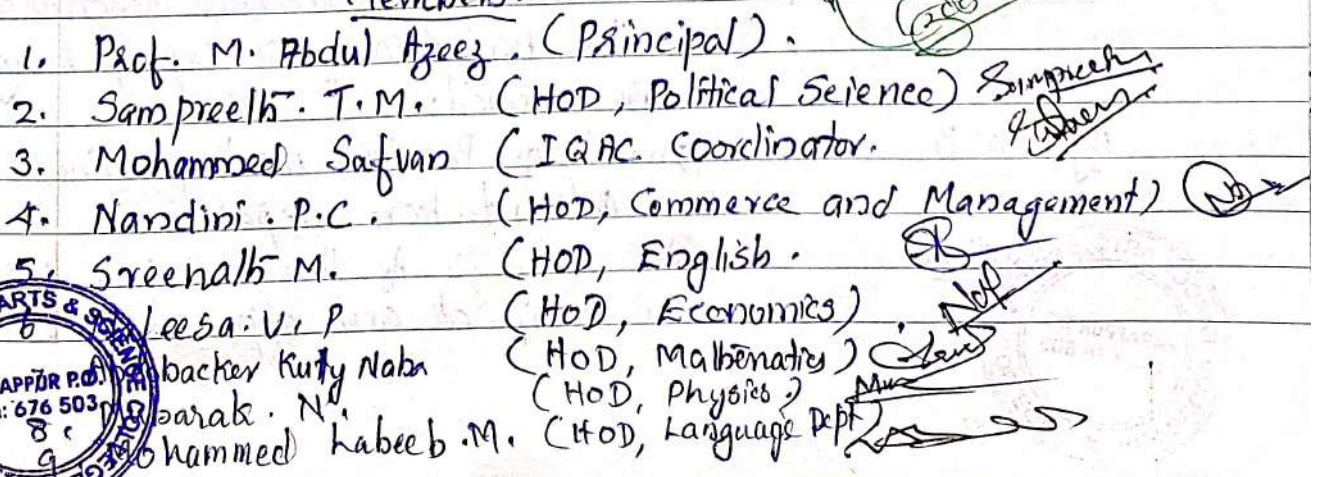 Members.
1. Prof. M. Abdul Azeez. (Principal).
2. Sampreeth. T.M. (HOD, Political Science) Sampreeth
3. Mohammed Safvan (IQAC. Coordinator.
4. Nandini. P.C. (HOD, Commerce and Management)
5. Sreenath M. (HOD, English.
6 leesa. V. P (HoD, Economics).
backer Kutty Naha (HOD, Mathematics)
8 barak. N. (HOD, Physics)
9 ohammed Labeeb .M. (HOD, Language Dept)
ARTS & SCIENCE COLLEGE
APPUR P.O.
: 676 503